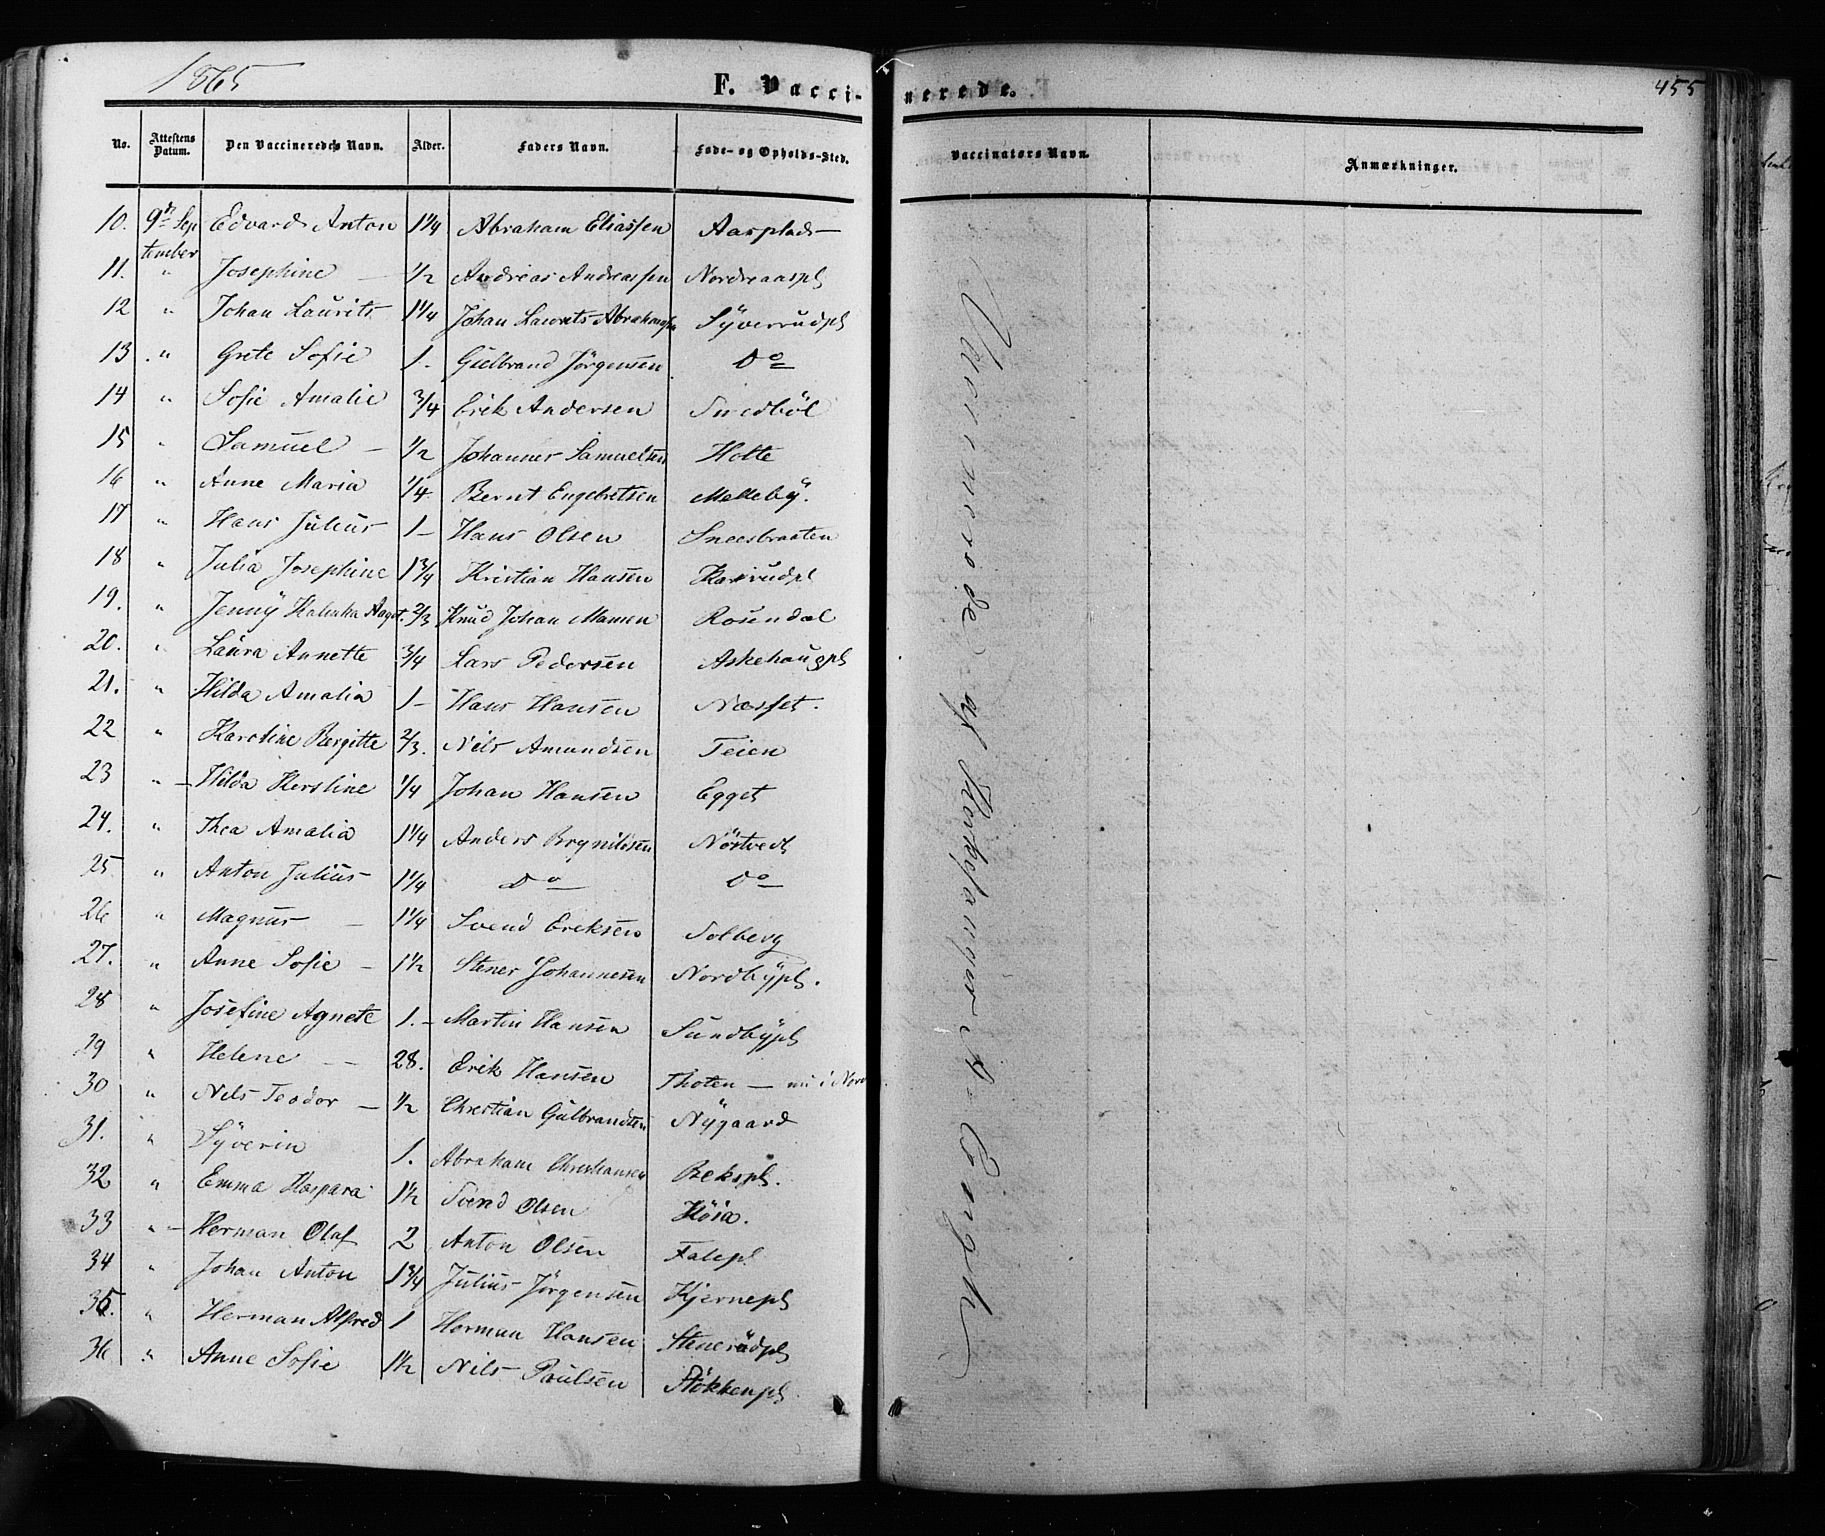 1865
F. Vacci-nerede.
455
No. Attestens Datum. Den Vaccineredes Navn. Alder. Faders Navn. Føde- og Opholds-Sted. Vaccinators Navn. Anmærkninger.
10. 9de Sep Edvard Anton 1 1/4 Abraham Eliassen Aasplads
tember
11. " Josephine — 1/2 Andreas Andreassen Nordreaaspl
12 " Johan Laurits 1 1/4 Johan Laurits Abrahamsen Syverrudpl
13 " Grete Sofie 1. Gulbrand Jörgensen Do
14 " Sofie Amalie 3/4 Erik Andersen Smedböl
15 " Samuel — 1/2 Johannes Samuelsen Holte
16 " Anne Maria 1/4. Bernt Engebretsen Melleby.
17 " Hans Julius 1— Hans Olsen Sneesbraaten
18 " Julia Josephine 1 3/4 Kristian Hansen Kasrudpl
19. " Jenny Aagot. 2/3 Knud Johan Mamen Rosendal
20. " Laura Annette 3/4 Lars Pedersen Askehaugpl
21. " Hilda Amalia 1— Hans Hansen Næsset.
22 " Karoline Bergitte 2/3. Nils Amundsen Teien
23 " — Hilda Kerstine 1/4 Johan Hansen Egget
24. " Thea Amalia 1 1/4 Anders Brynildsen Nöstvedt
25 " Anton Julius 1 1/4 Do Do
26 " Magnus — 1 1/4 Svend Eriksen Solberg
27. " Anne Sofie — 1 1/2 Stener Johannesen Nordbypl.
28 " Josefine Agnete 1.— Martin Hansen Sundbypl
29 " Helene — 28. Erik Hansen Thoten — nu i
30 " Nils Teodor — 1/2 Christian Gulbrandsen Nygaard
31. " Syverin 1. Abraham Christiansen Bekspl.
32 " Emma Kaspara 1 1/2 Svend Olsen Köia.
33 " — Herman Olaf 2 Anton Olsen Falepl
34 " Johan Anton 1 3/4 Julius Jörgensen Kjernepl
35. " Herman Alfred 1 Herman Hansen Stenerudpl
36 " Anne Sofie 1 1/2 Nils Poulsen Stökkenpl
Vaccinerede af Korpslæge